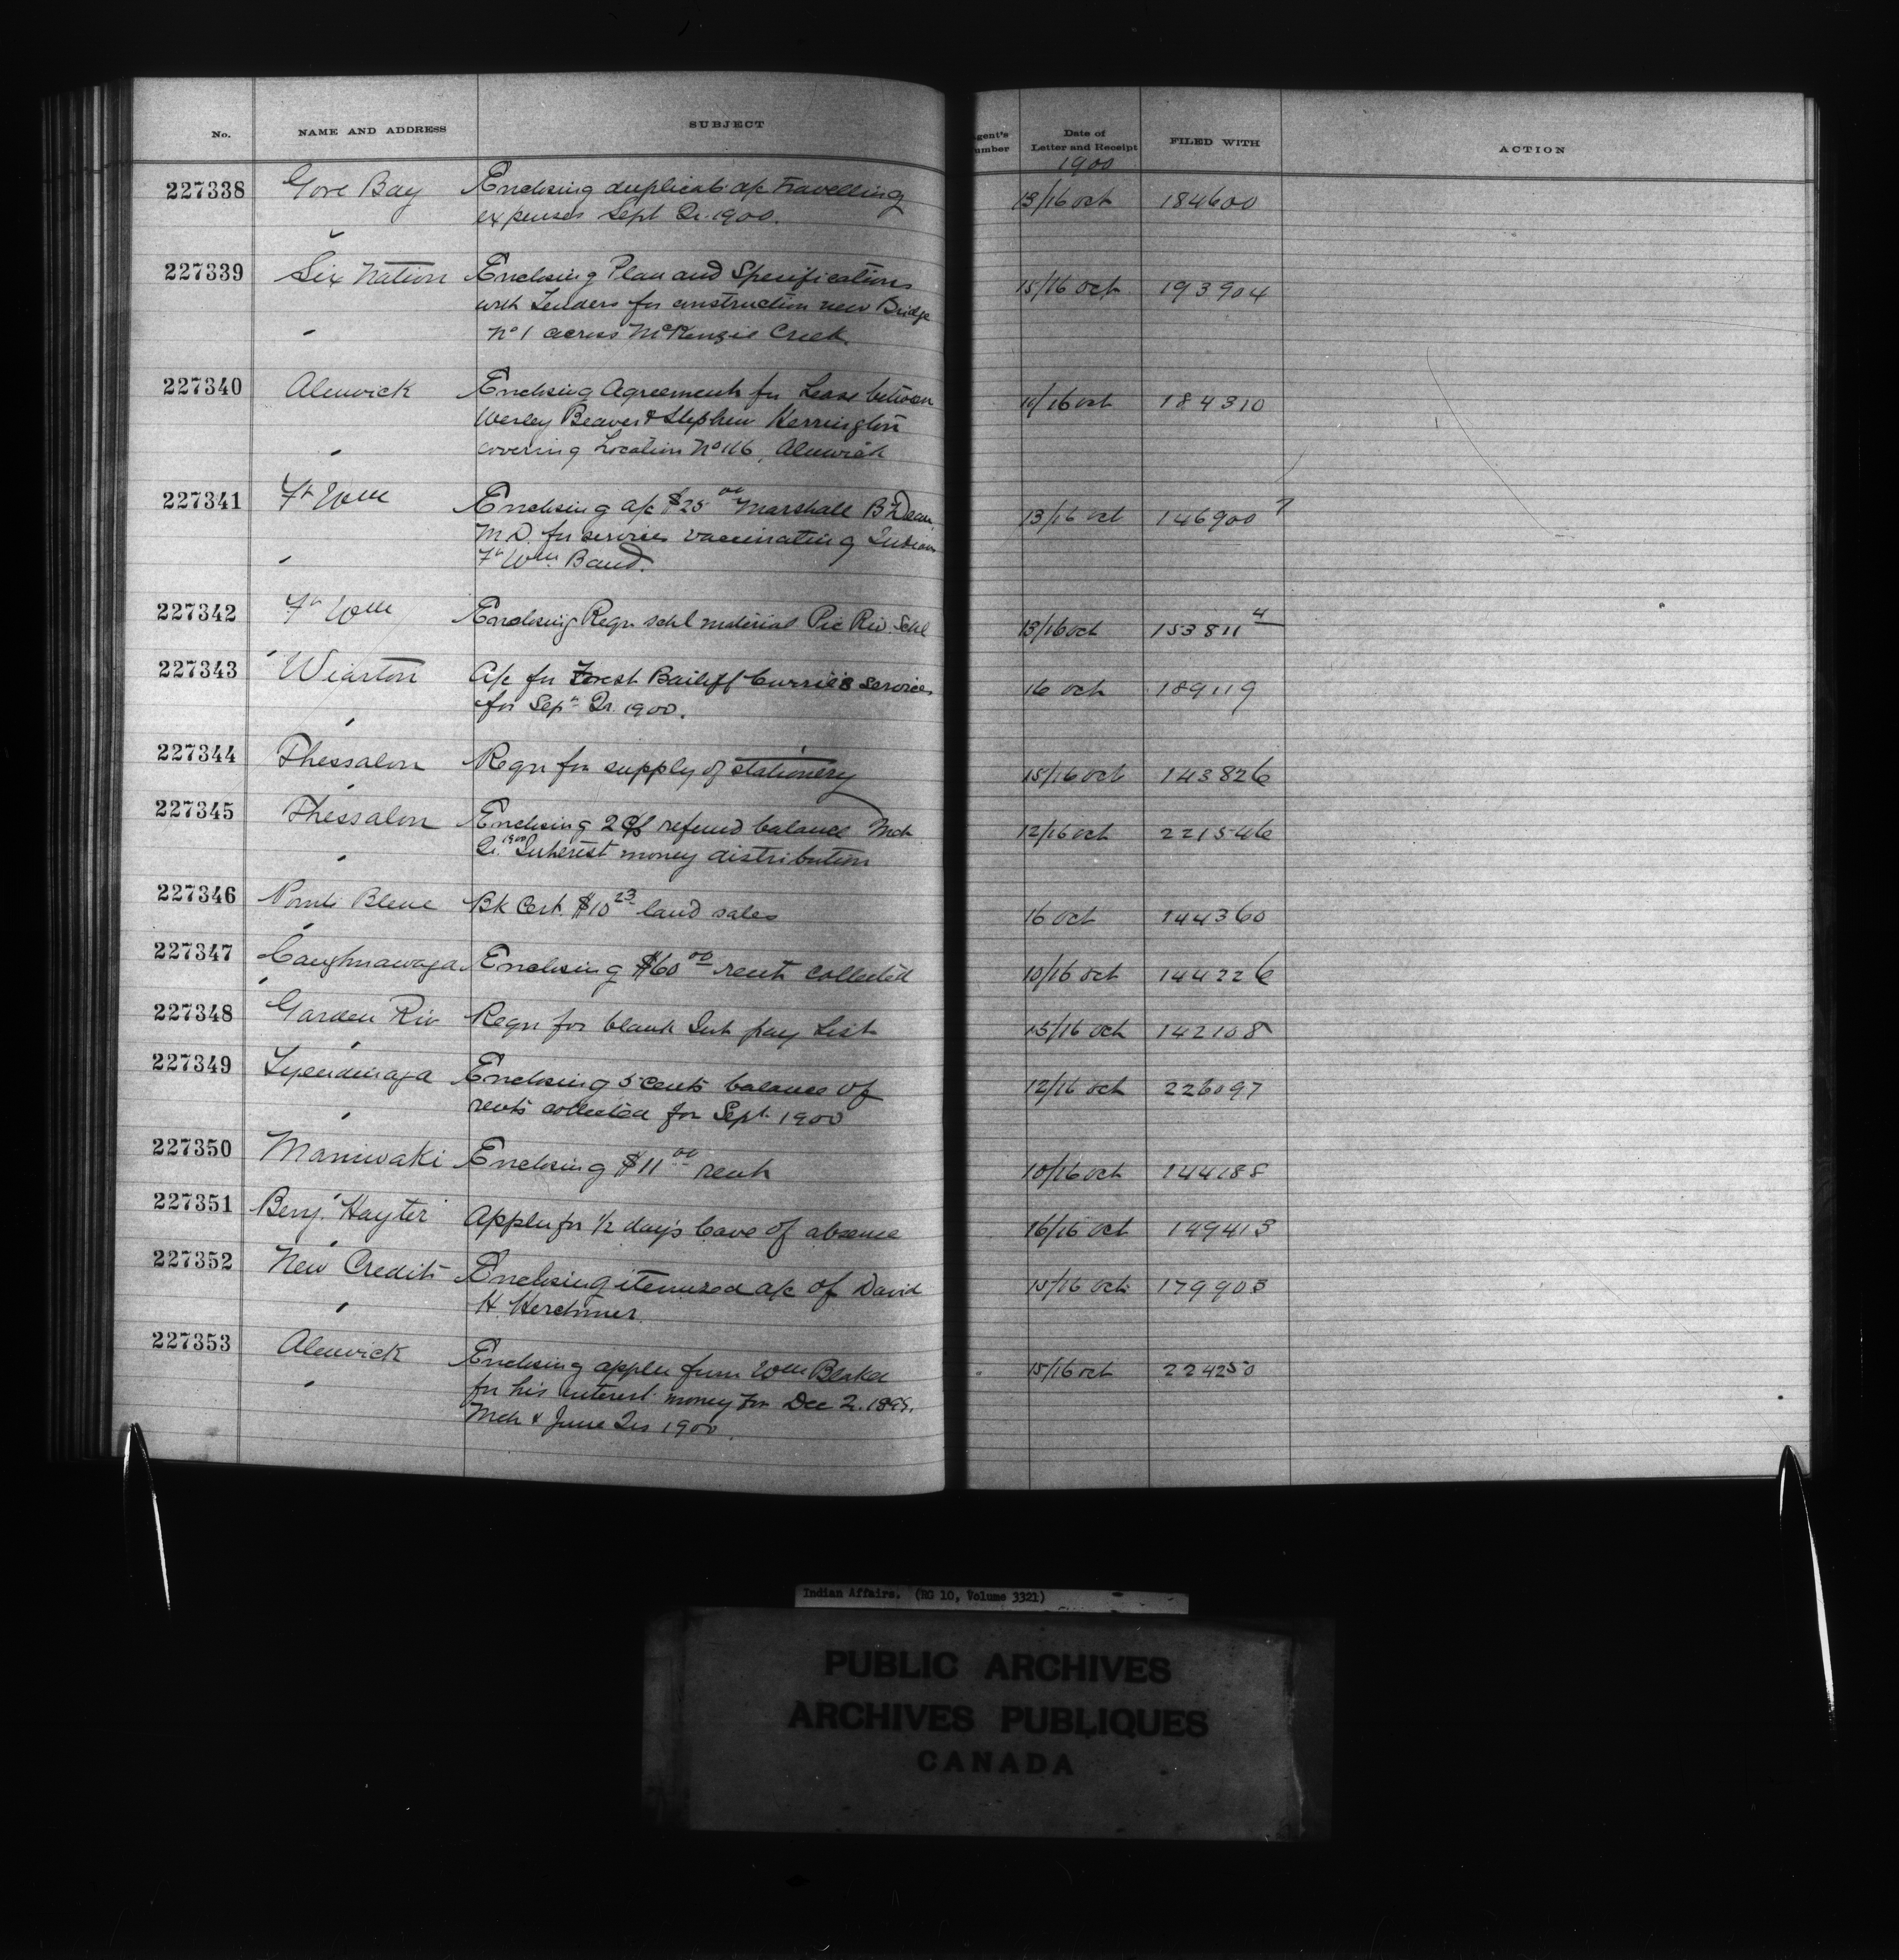 No. NAME AND ADDRESS SUBJECT
Agent's Number Date of Letter and Receipt FILED WITH ACTION
1900
227338 Gore Bay Enclosing duplicate a/c Travelling
expenses Sept Qr. 1900. 13/16 Oct 184600
227339 Six Nation Enclosing Plan and Specifications
with Tenders for construction new Bridge
No 1 across McKenzie Creek. 15/16 Oct 193904
227340 Alnwick Enclosing Agreements for Lease between
Wesley Beaver & Stephen Herrington
covering Location No 116, Alnwick 11/16 Oct 184310
227341 Ft Wm Enclosing a/c $25 00 Marshall B Dean
M.D. for services vaccinating Indians
Ft Wm. Band. 13/16 Oct 146900 7
227342 Ft Wm Enclosing Reqn schl material Pic Riv. Schl 13/16 Oct 153811 4
227343 Wiarton A/c for Forest Bailiff Currie's services
for Sepr Qr. 1900. 16 Oct 189119
227344 Thessalon Reqn for supply of stationery 15/16 Oct 143826
227345 Thessalon Enclosing 2 refund balance Mch
Qr. 1900 Interest money distribution 12/16 Oct 221546
227346 Pointe Bleue Bk Cert. $10 23 land sales 16 Oct 144360
227347 Caughnawaga Enclosing $60 00 rent collected 10/16 Oct 144226
227348 Garden Riv Reqn for blank Int pay List 15/16 Oct 142108
227349 Tyendinaga Enclosing 5 cents balance of
rents collected for Sept. 1900 12/16 Oct 226097
227350 Maniwaki Enclosing $11 00 rent 10/16 Oct 144188
227351 Benj. Hayter Appln for 1/2 day's leave of absence 16/16 Oct 149413
227352 New Credit Enclosing itemized a/c of David
H. Kerchmer. 15/16 Oct 179903
227353 Alnwick Enclosing appln from Wm Blaker
for his interest money for Dec Qr. 1899.
Mch & June Qrs 1900. 15/16 Oct 224250
Indian Affairs. (RG 10, Volume 3321)
PUBLIC ARCHIVES
ARCHIVES PUBLIQUES
CANADA